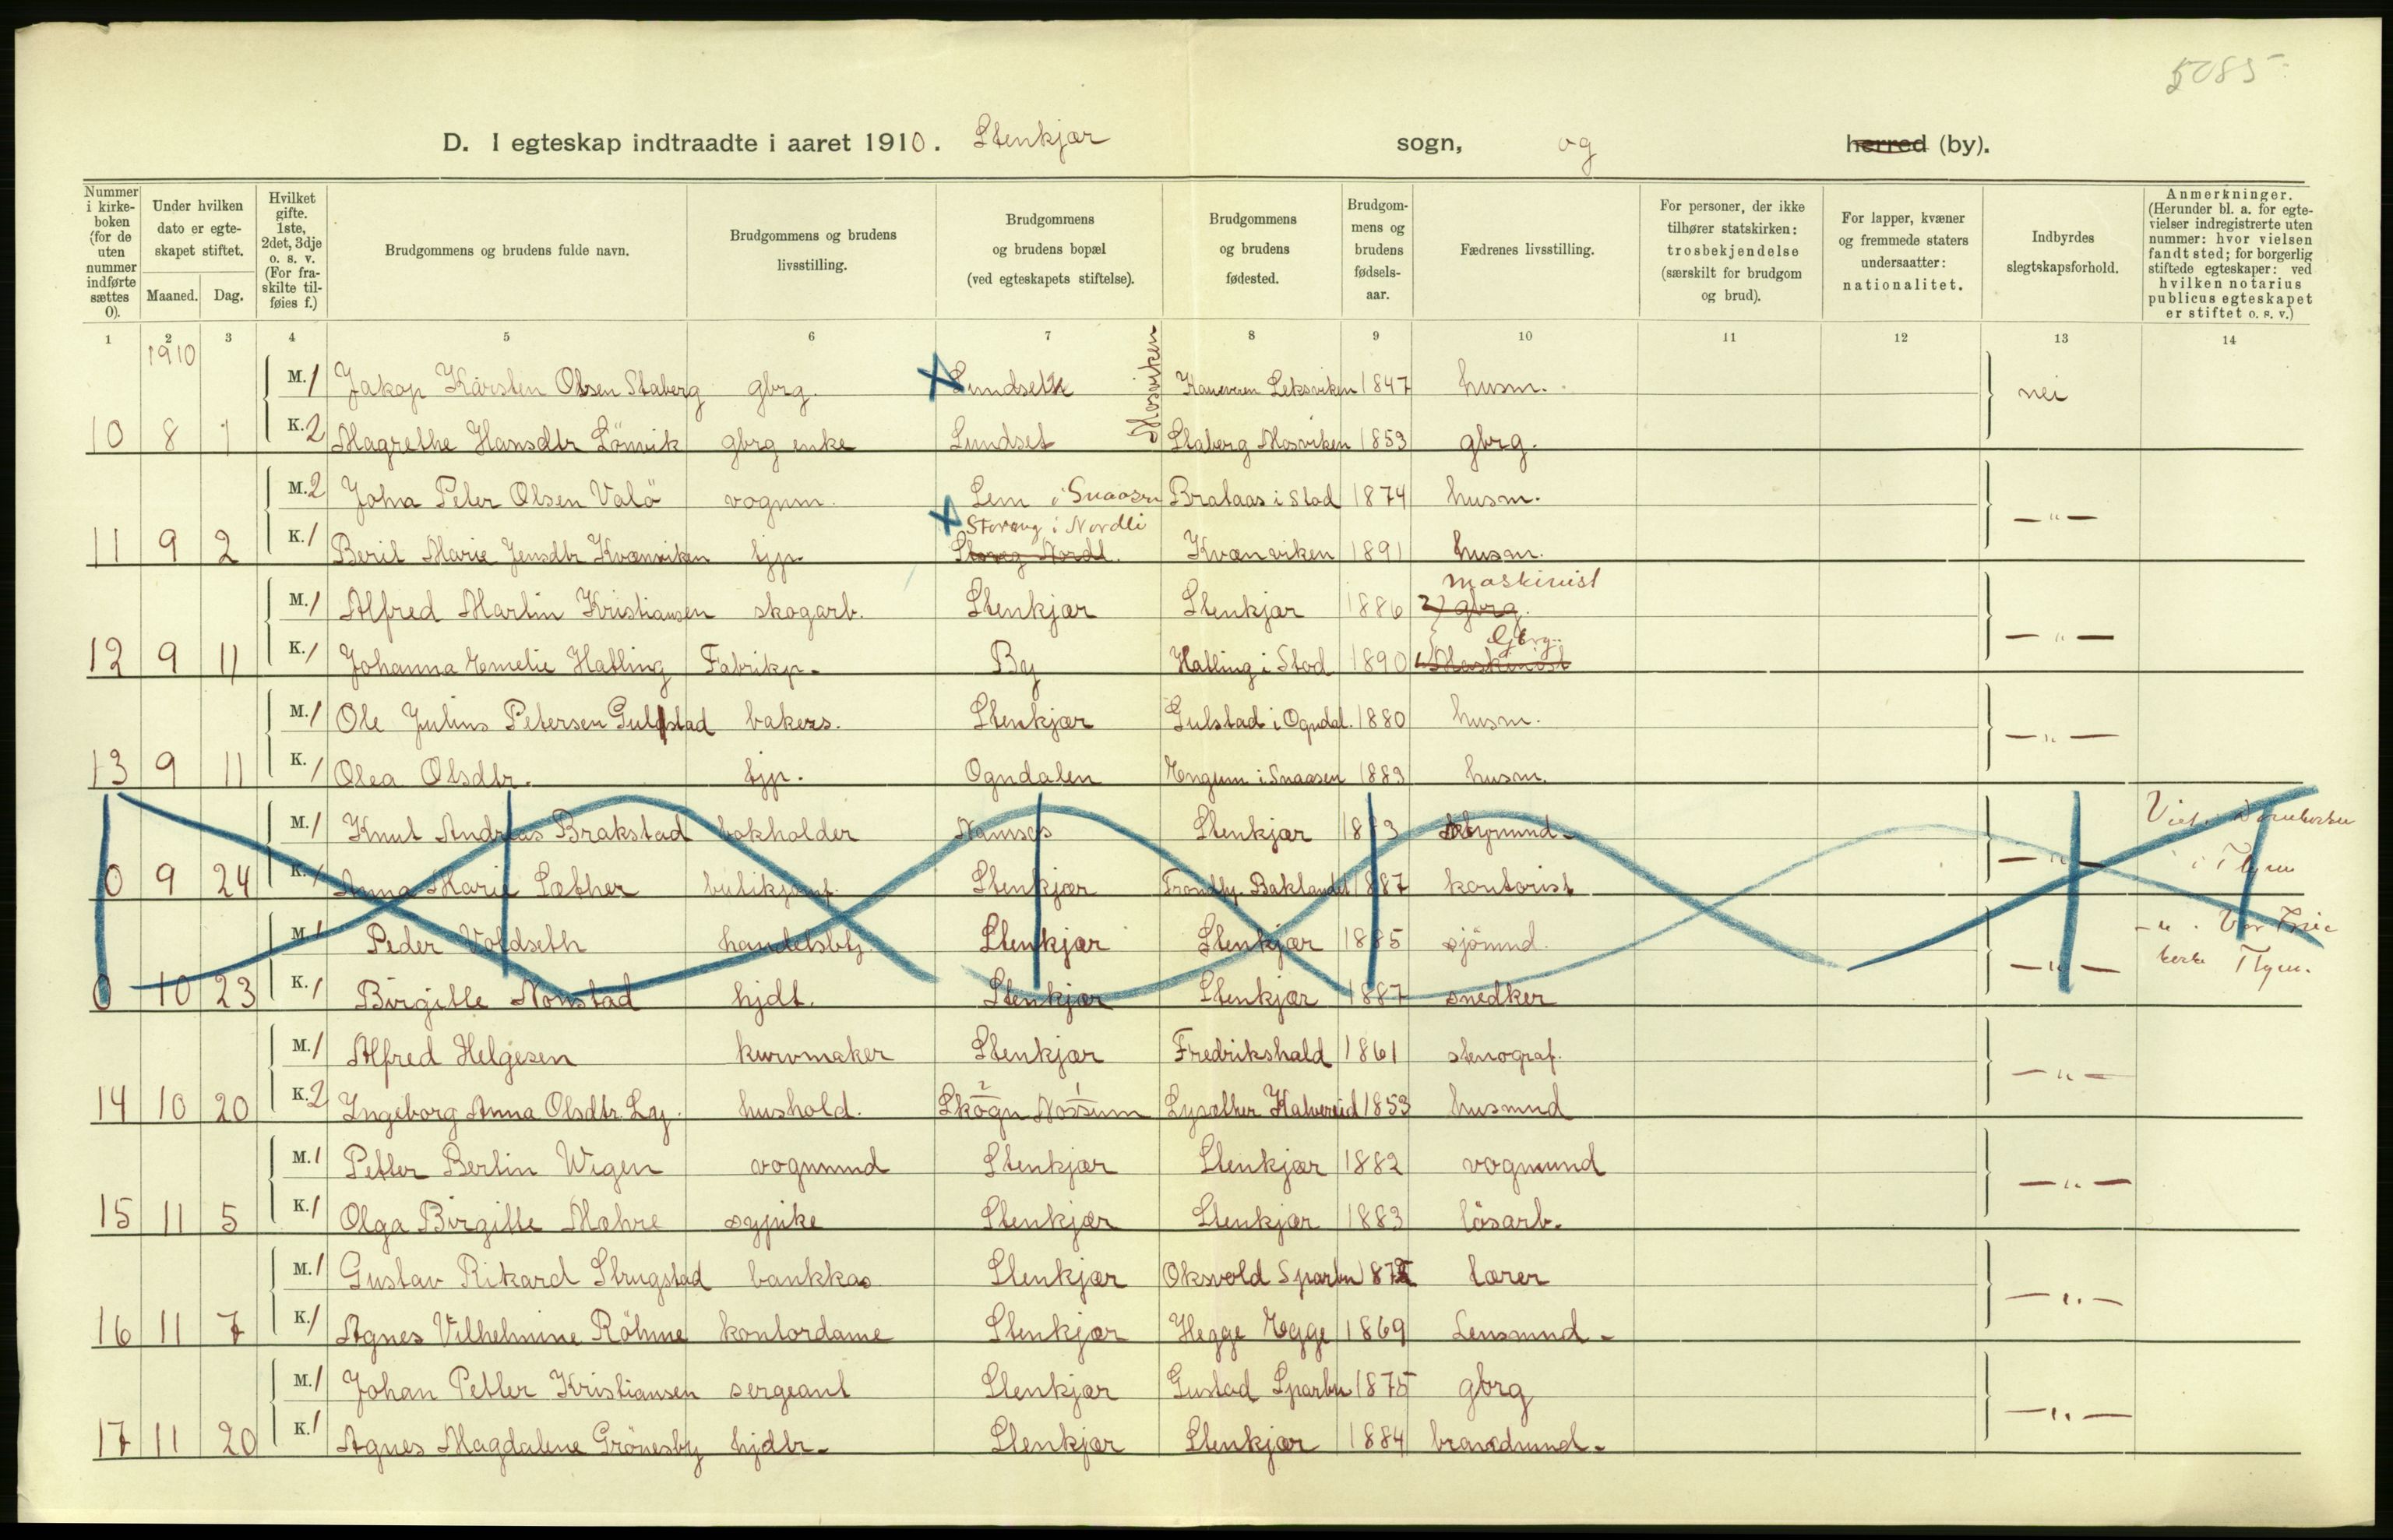 5085
D. I egteskap indtraadte i aaret 1910. Stenkjær sogn, og herred (by).
Nummer i kirkeboken (for de uten nummer indførte sættes 0).
Under hvilken dato er egteskapet stiftet.
Maaned. Dag.
Hvilket gifte. 1ste, 2det, 3dje o. s. v. (For fraskilte tilføies f.)
Brudgommens og brudens fulde navn.
Brudgommens og brudens livsstilling.
Brudgommens og brudens bopæl (ved egteskapets stiftelse).
Brudgommens og brudens fødested.
Brudgommens og brudens fødselsaar.
Fædrenes livsstilling.
For personer, der ikke tilhører statskirken: trosbekjendelse (særskilt for brudgom og brud).
For lapper, kvæner og fremmede staters undersaatter: nationalitet.
Indbyrdes slegtskapsforhold.
Anmerkninger. (Herunder bl. a. for egtevielser indregistrerte uten nummer: hvor vielsen fandt sted; for borgerlig stiftede egteskaper: ved hvilken notarius publicus egteskapet er stiftet o. s. v.)
1 2 3 4 5 6 7 8 9 10 11 12 13 14
1910
M. 1 Jakop Karsten Olsen Staberg gbrg. Lundseth Mosviken Leksviken 1847 husm. nei
10 8 1 K. 2 Magrethe Hansdtr Lönvik gbrg enke Lundset Staberg Mosviken 1853 gbrg.
M. 2 Joha Peter Olsen Valö vognm. Lem i Snaasen Brataas i Stod 1874 husm. — " —
Storaug i Nordli
11 9 2 K. 1 Berit Marie Jensdtr Kvænviken tjp. Kvænviken 1891 husm.
maskinist
M. 1 Alfred Martin Kristiansen skogarb. Stenkjær Stenkjær 1886 2) gbrg. — " —
Gbrg.
12 9 11 K. 1 Johanna Emelie Hatling Fabrikp. By Hatling i Stod 1890 Maskinist
M. 1 Ole Julius Petersen Gulstad bakers. Stenkjær Gulstad i Ogndal. 1880 husm. — " —
13 9 11 K. 1 Olea Olsdtr. tjp. Ogndalen Engum i Snaasen 1883 husm.
M. 1 Knut Andreas Brakstad bokholder Namsos Stenkjær — " —
0 9 24 K. 1 Anna Marie Læther Stenkjær Trondhj. Baklandet 1887 kontorist i Thjem
M. 1 Peder Voldseth handelsbtj. Stenkjær Stenkjær 1885 sjömnd. — " — - " . Vor Frue
0 10 23 K. 1 Birgitte Nonstad hjdt. Stenkjær Stenkjær 1887 snedker kirke Thjem.
M. 1 Alfred Helgesen kurvmaker Stenkjær Fredrikshald 1861 stenograf. — " —
14 10 20 K. 2 Ingeborg Anna Olsdtr Ly. hushold. Skogn Nossum 1853 husmnd
M. 1 Petter Bertin Wigen vognmnd Stenkjær Stenkjær 1882 vognmnd — " —
15 11 5 K. 1 Olga Birgitte Mæhre sypike Stenkjær Stenkjær 1883 lösarb.
M. 1 Gustav Rikard Strugstad bankkas. Stenkjær Oksvold Sparbu lærer — " —
16 11 7 K. 1 Agnes Vilhelmine Röhme kontordame Stenkjær Hegge Egge 1869 Lensmnd.
M. 1 Johan Petter Kristiansen sergeant Stenkjær Gustad Sparbu 1875 gbrg — " —
17 11 20 K. 1 Agnes Magdalene Grönesby hjdtr. Stenkjær Stenkjær 1884 brandmnd.